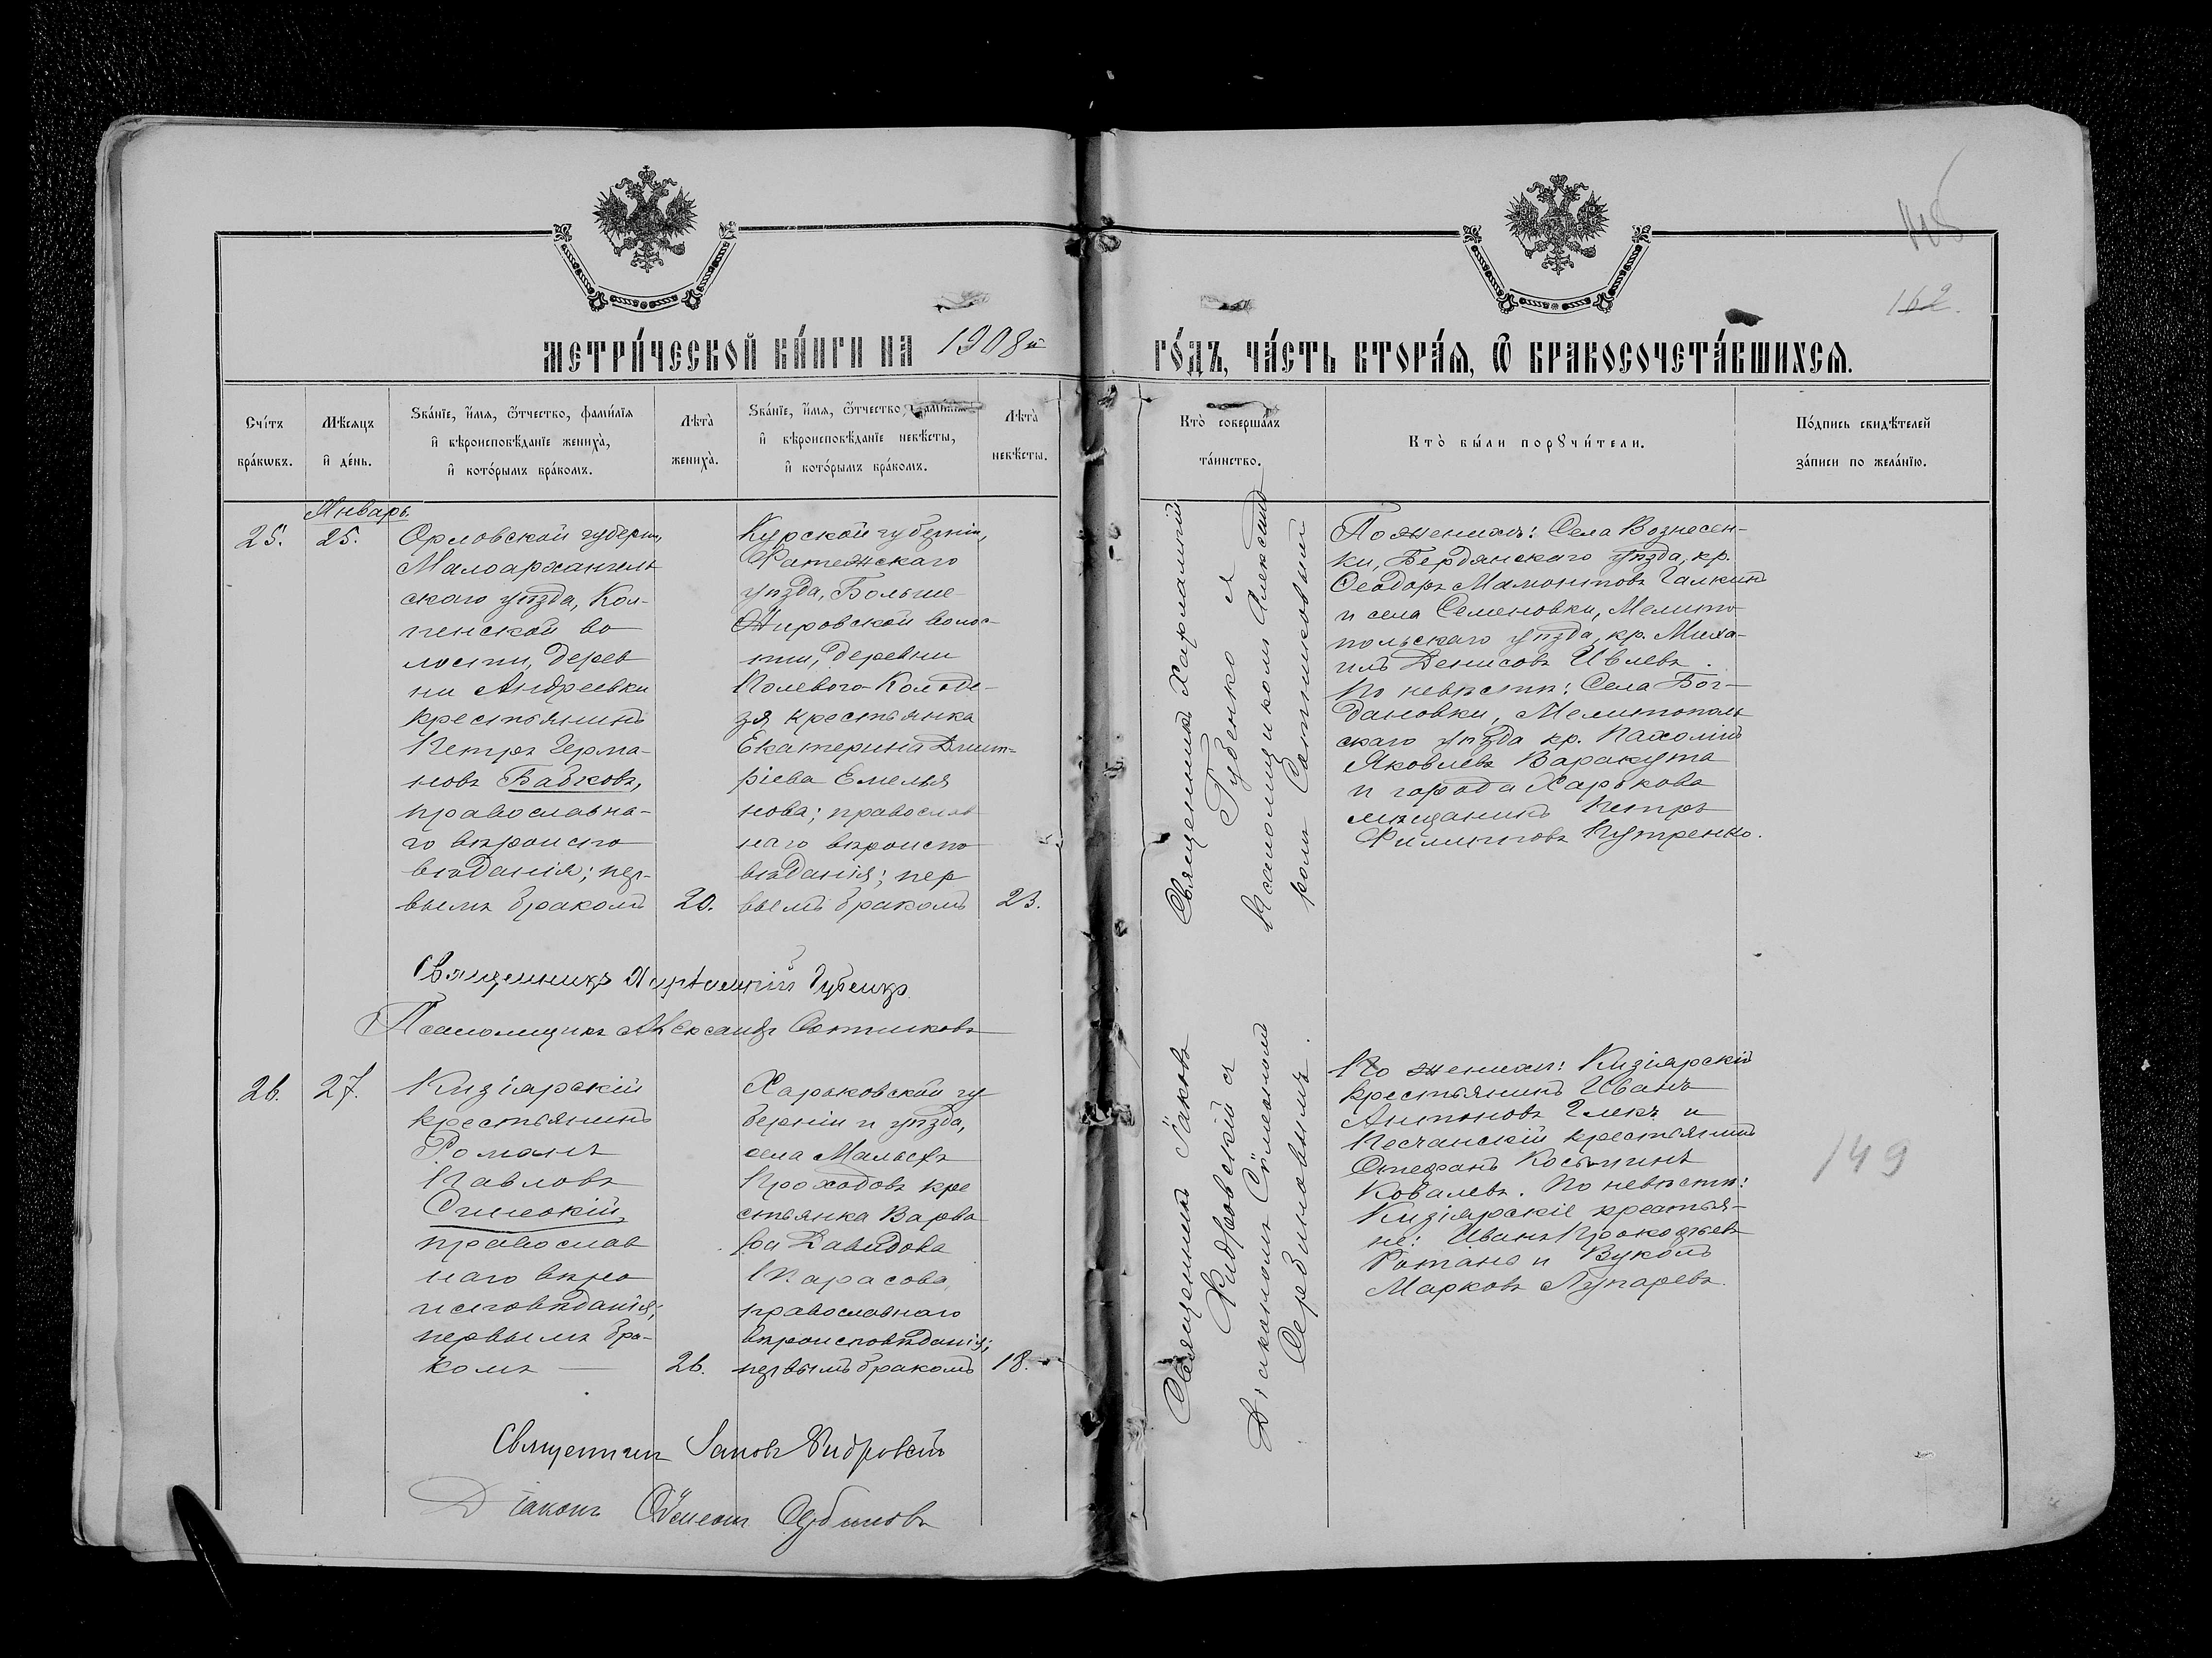 МЕТРИ́ЧЕСКОЙ КНИ́ГИ НА 1908й ГО́ДЪ, ЧА́СТЬ ВТОРА́Я, Ѡ БРАКОСОЧЕТА́ВШИХСЯ.
162.
Сче́тъ бра́кѡвъ.
Мѣ́сяцъ и де́нь.
Зва́нїе, и́мя, ѻ́тчество, фами́лїя и вѣроисповѣ́данїе жениха̀, и кото́рымъ бра́комъ.
Лѣта̀ жениха̀.
Зва́нїе, и́мя, ѻ́тчество, фами́лїя и вѣроисповѣ́данїе невѣ́сты, и кото́рымъ бра́комъ.
Лѣта̀ невѣ́сты.
Кто̀ соверша́лъ та́инство.
Кто̀ бы́ли порꙋчи́тели.
По́дпись свидѣ́телей за́писи по жела́нїю.
Январь.
25.
25.
Орловской губерніи,
Малоархангель
скаго уѣзда, Кол-
пенской во
лости, дерев
ни Андреевки
крестьянинъ
Петръ Герма-
новъ Бабковъ,
православна-
го вѣроиспо
вѣданія; пер-
вымъ бракомъ
20.
Курской губерніи,
Фатежскаго
уѣзда, Больше
Жировской волос-
ти, деревни
Полевого Колоде-
зя крестьянка
Екатерина Димит-
ріева Емелья
нова; православ
наго вѣроиспо
вѣданія; пер
вымъ бракомъ
23.
Священникъ Харлампій
Губенко и
Псаломщикомъ Александ
ромъ Сотниковымъ
По женихѣ: Села Вознесен-
ки, Бердянскаго уѣзда, кр.
Ѳеодоръ Мамонтовъ Галкинъ
и села Семеновки, Мелито
польскаго уѣзда, кр. Миха-
илъ Денисовъ Ивлевъ.
По невѣстѣ: Села Бог-
дановки, Мелитополь
скаго уѣзда кр. Пахомій
Яковлевъ Варакута
и города Харькова
мѣщанинъ Петръ
Филипповъ Путренко.
Священникъ Харлампій Губенко
Псаломщикъ Александръ Сотниковъ
26.
27.
Кизіярскій
крестьянинъ
Романъ
Павловъ
православ
наго вѣро
исповѣданія;
первымъ бра-
комъ —
26.
Харьковской гу
берніи и уѣзда,
села Малыхъ
Проходовъ кре
стьянка Варва
ра Давидова
православнаго
вѣроисповѣданія;
первымъ бракомъ
18.
Священникъ Іаковъ
Фидровскій съ
Діакономъ Сѵмеономъ
Сербиновымъ.
По женихѣ: Кизіярскій
крестьянинъ Иванъ
Антоновъ Глекъ и
Песчанскій крестьянинъ
Стефанъ Косьминъ
Ковалевъ. По невѣстѣ:
Кизіярскіе крестья-
не: Иванъ Прокофьевъ
Ротань и Вуколъ
Марковъ Лупаревъ.
149
Священникъ Іаковъ Фидровскій
Діаконъ Сѵмеонъ Сербиновъ